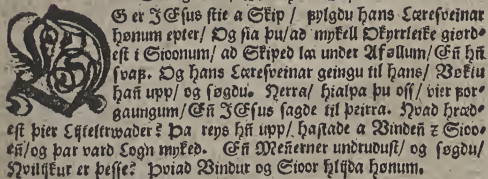 OG er JEsus stie a Skip/ fylgdu hans Læresveinar
hønum epter/ Og sia þu/ ad mykell Okyrrleike giørd-
est i Sioonum/ ad Skiped lai under Aføllum/ Eñ hñ
svaf. Og hans Læresveinar geingu til hans/ Vøktu
hañ upp/ og søgdu. Herra/ hialpa þu oss/ vier for-
gaungum/ Eñ JEsus sagde til þeirra. Hvad hræd-
est þier Lijteltrwader? Þa reys hñ upp/ hastade a Vinden ꝛ Sioo-
eñ/ og þar vard Logn myked. Eñ Meñerner undrudust/ og søgdu/
Hvilijkur er þesse? Þviad Vindur og Sioor hlijda hønum.